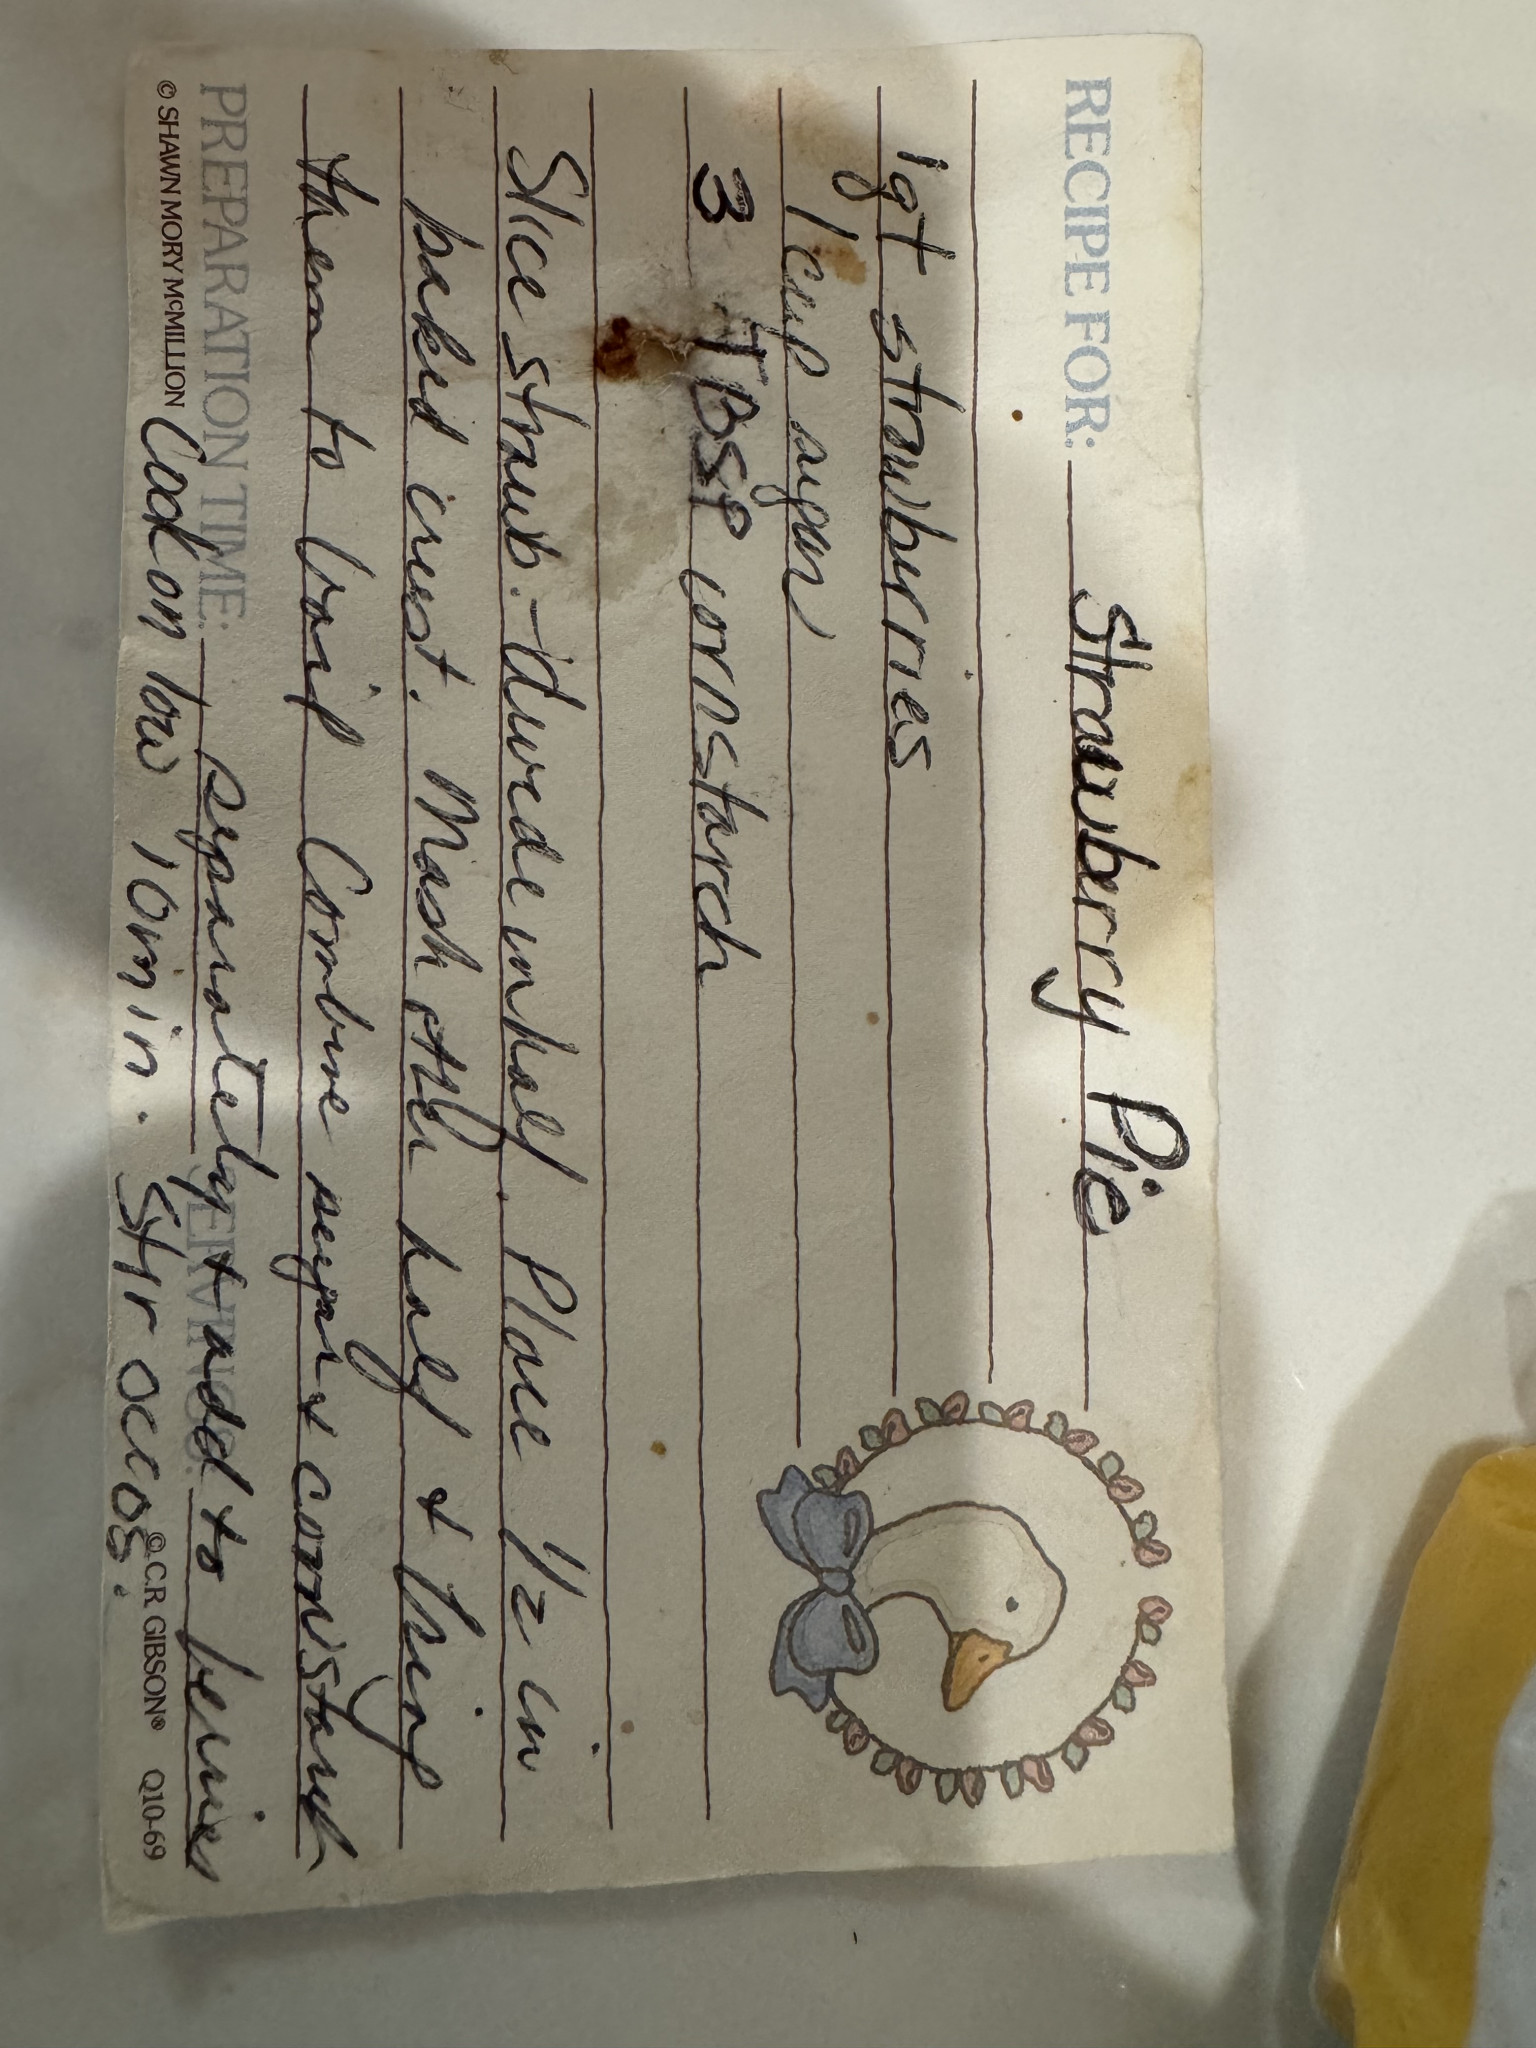 RECIPE FOR: Strawberry Pie
1 qt strawberries
1 cup sugar
3 TBSP cornstarch
Slice strawb. - divide in half. Place 1/2 in
baked crust. Mash other half & bring
them to boil. Combine sugar & cornstarch
PREPARATION TIME: separately & add to berries SERVINGS:
© SHAWN MORY McMILLION Cook on low 10 min. Stir occas. © C.R. GIBSON® Q10-69